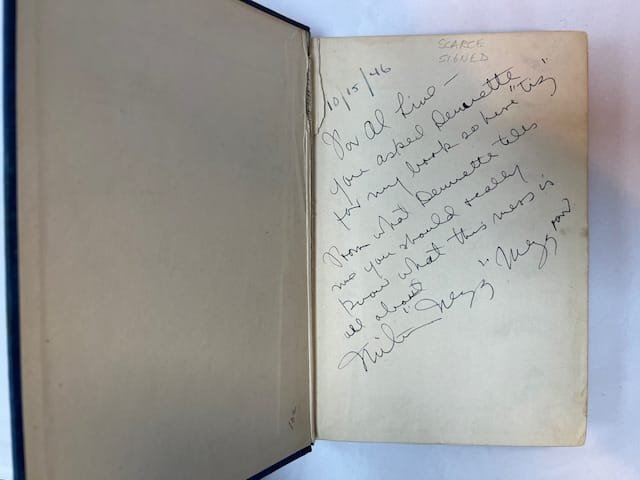 SCARCE
SIGNED
10/15/46
For Al Line -
you asked Dennette
for my book so here "tiz"
From what Dennette tells
me you should really
know what this mess is
all about
Milton "Mezz" Mezzrow